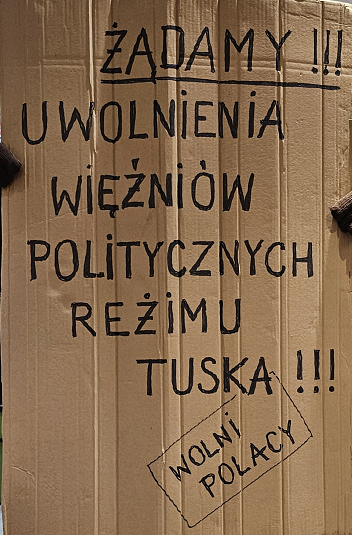 ŻĄDAMY !!!
UWOLNIENIA
WIĘŹNIÓW
POLITYCZNYCH
REŻIMU
TUSKA !!!
WOLNI
POLACY